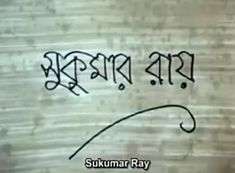 সুকুমার রায়
Sukumar Ray